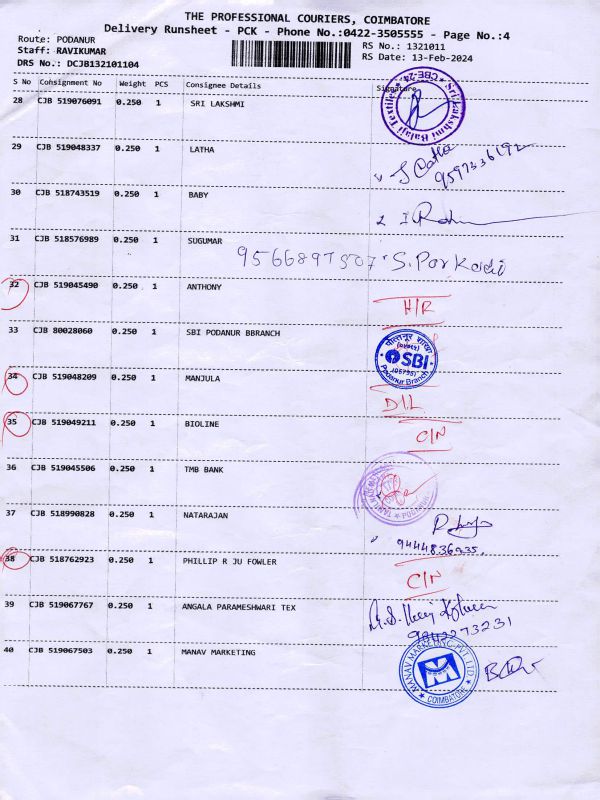 THE PROFESSIONAL COURIERS, COIMBATORE
Delivery Runsheet - PCK - Phone No.:0422-3505555 - Page No.:4
Route: PODANUR
Staff: RAVIKUMAR
DRS No.: DCJB132101104
RS No.: 1321011
RS Date: 13-Feb-2024
S No Consignment No Weight PCS Consignee Details Signature
28 CJB 519076091 0.250 1 SRI LAKSHMI
Sri Lakshmi Balaji Textiles CBE-24
29 CJB 519048337 0.250 1 LATHA
9597336192
30 CJB 518743519 0.250 1 BABY
31 CJB 518576989 0.250 1 SUGUMAR
9566897507 S. Porkodi
32 CJB 519045490 0.250 1 ANTHONY H/R
33 CJB 80028060 0.250 1 SBI PODANUR BBRANCH
SBI
(06795)
Podanur Branch
34 CJB 519048209 0.250 1 MANJULA D/L
35 CJB 519049211 0.250 1 BIOLINE C/N
36 CJB 519045506 0.250 1 TMB BANK
37 CJB 518990828 0.250 1 NATARAJAN
9444836235
38 CJB 518762923 0.250 1 PHILLIP R JU FOWLER C/N
39 CJB 519067767 0.250 1 ANGALA PARAMESHWARI TEX
9842273231
40 CJB 519067503 0.250 1 MANAV MARKETING
MANAV MARKETING PVT LTD
COIMBATORE